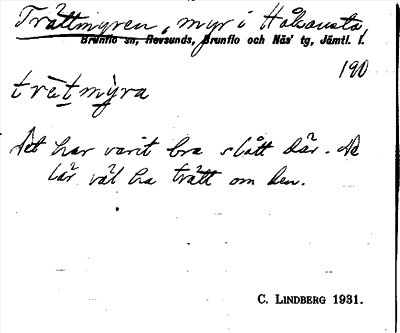 Trättmyren, myr i Håkansta,
Brunflo sn, Revsunds, Brunflo och Näs' tg, Jämtl. l.
190
trètmỳra
Det har varit bra slått där. De
lär väl ha trätt om den.
C. LINDBERG 1931.